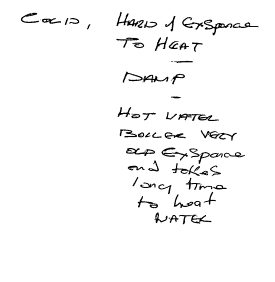 COLD, HARD & ExSpance
TO HEAT
—
DAMP
–
HOT WATER
BOILER VERY
OLD ExSpance
and takes
long time
to heat
WATER